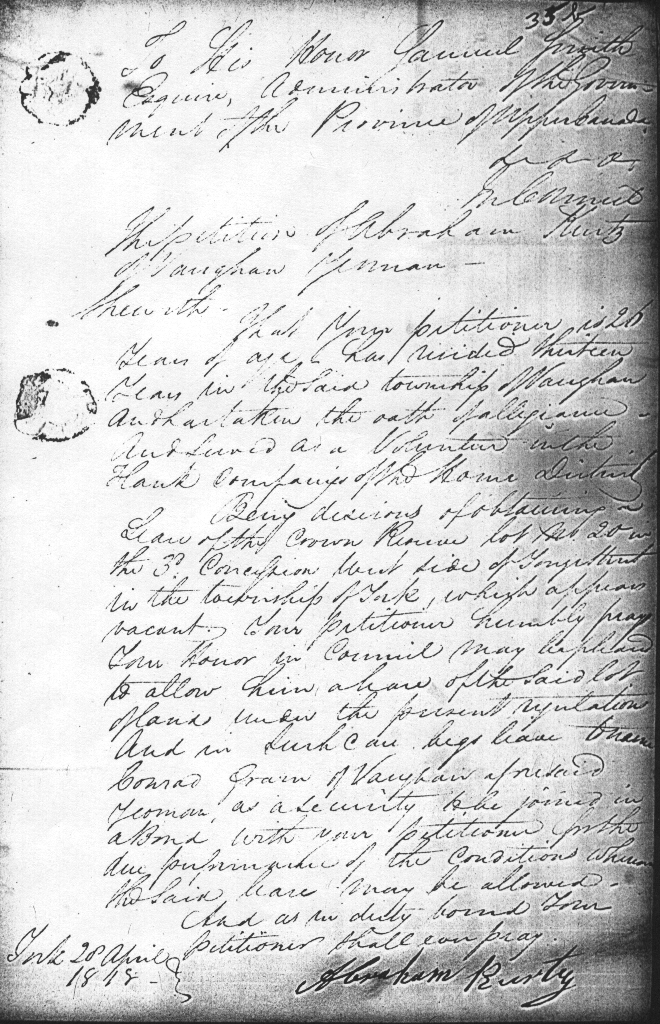 To His Honor Samuel Smith
Esquire, Administrator of the Govern-
ment of the Province of Upper Canada
&c &c &c
In Council
The petition of Abraham Kurtz
of Vaughan Yeoman -
Sheweth -
That Your petitioner is 26
Years of age, has resided thirteen
Years in the said township of Vaughan
And has taken the oath of allegiance -
And Served as a Volunteer in the
Flank Companies of the Home District
Being desirous of obtaining a
Lease of the Crown Reserve lot No 20 in
the 3d. Concession West side of Yonge Street
in the township of York, which appears
vacant. Your petitioner humbly prays
Your Honor in Council may be pleased
to allow him a lease of the said lot
of land under the present regulations
And in such case begs leave to name
Conrad Gram of Vaughan aforesaid
Yeoman, as a security to be joined in
a Bond with your petitioner for the
due performance of the Conditions whereon
the said lease may be allowed -
And as in duty bound Your
Petitioner shall ever pray.
York 28 April
1818 -
Abraham Kurtz